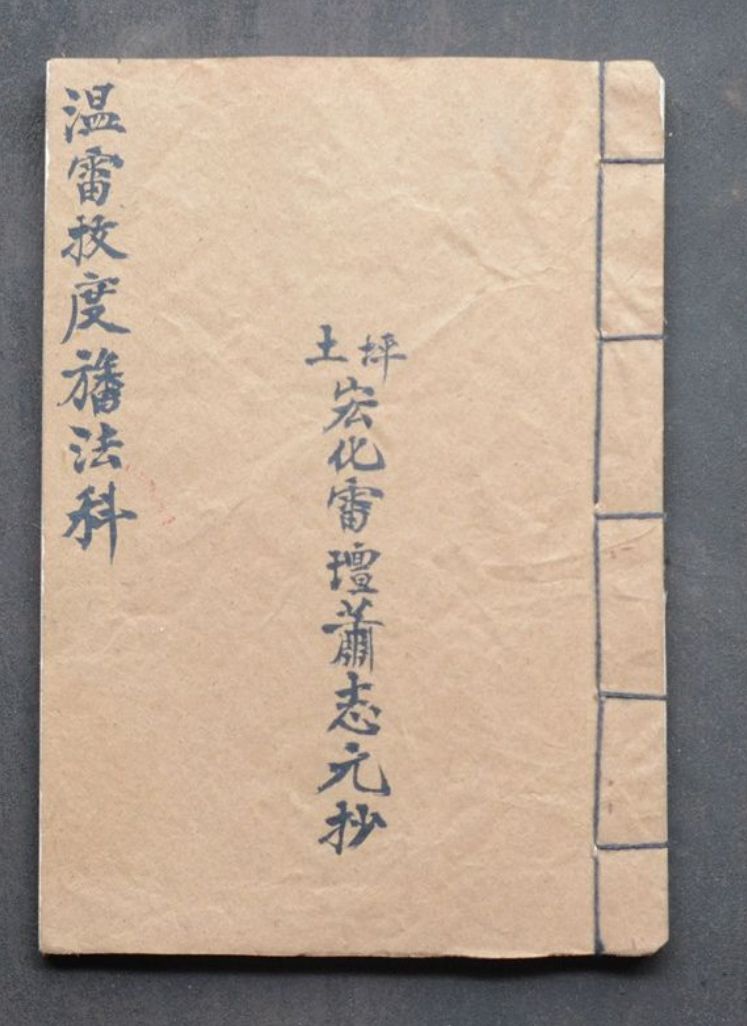 温雷抜度旛法科
土坪
宏化雷壇蕭志元抄